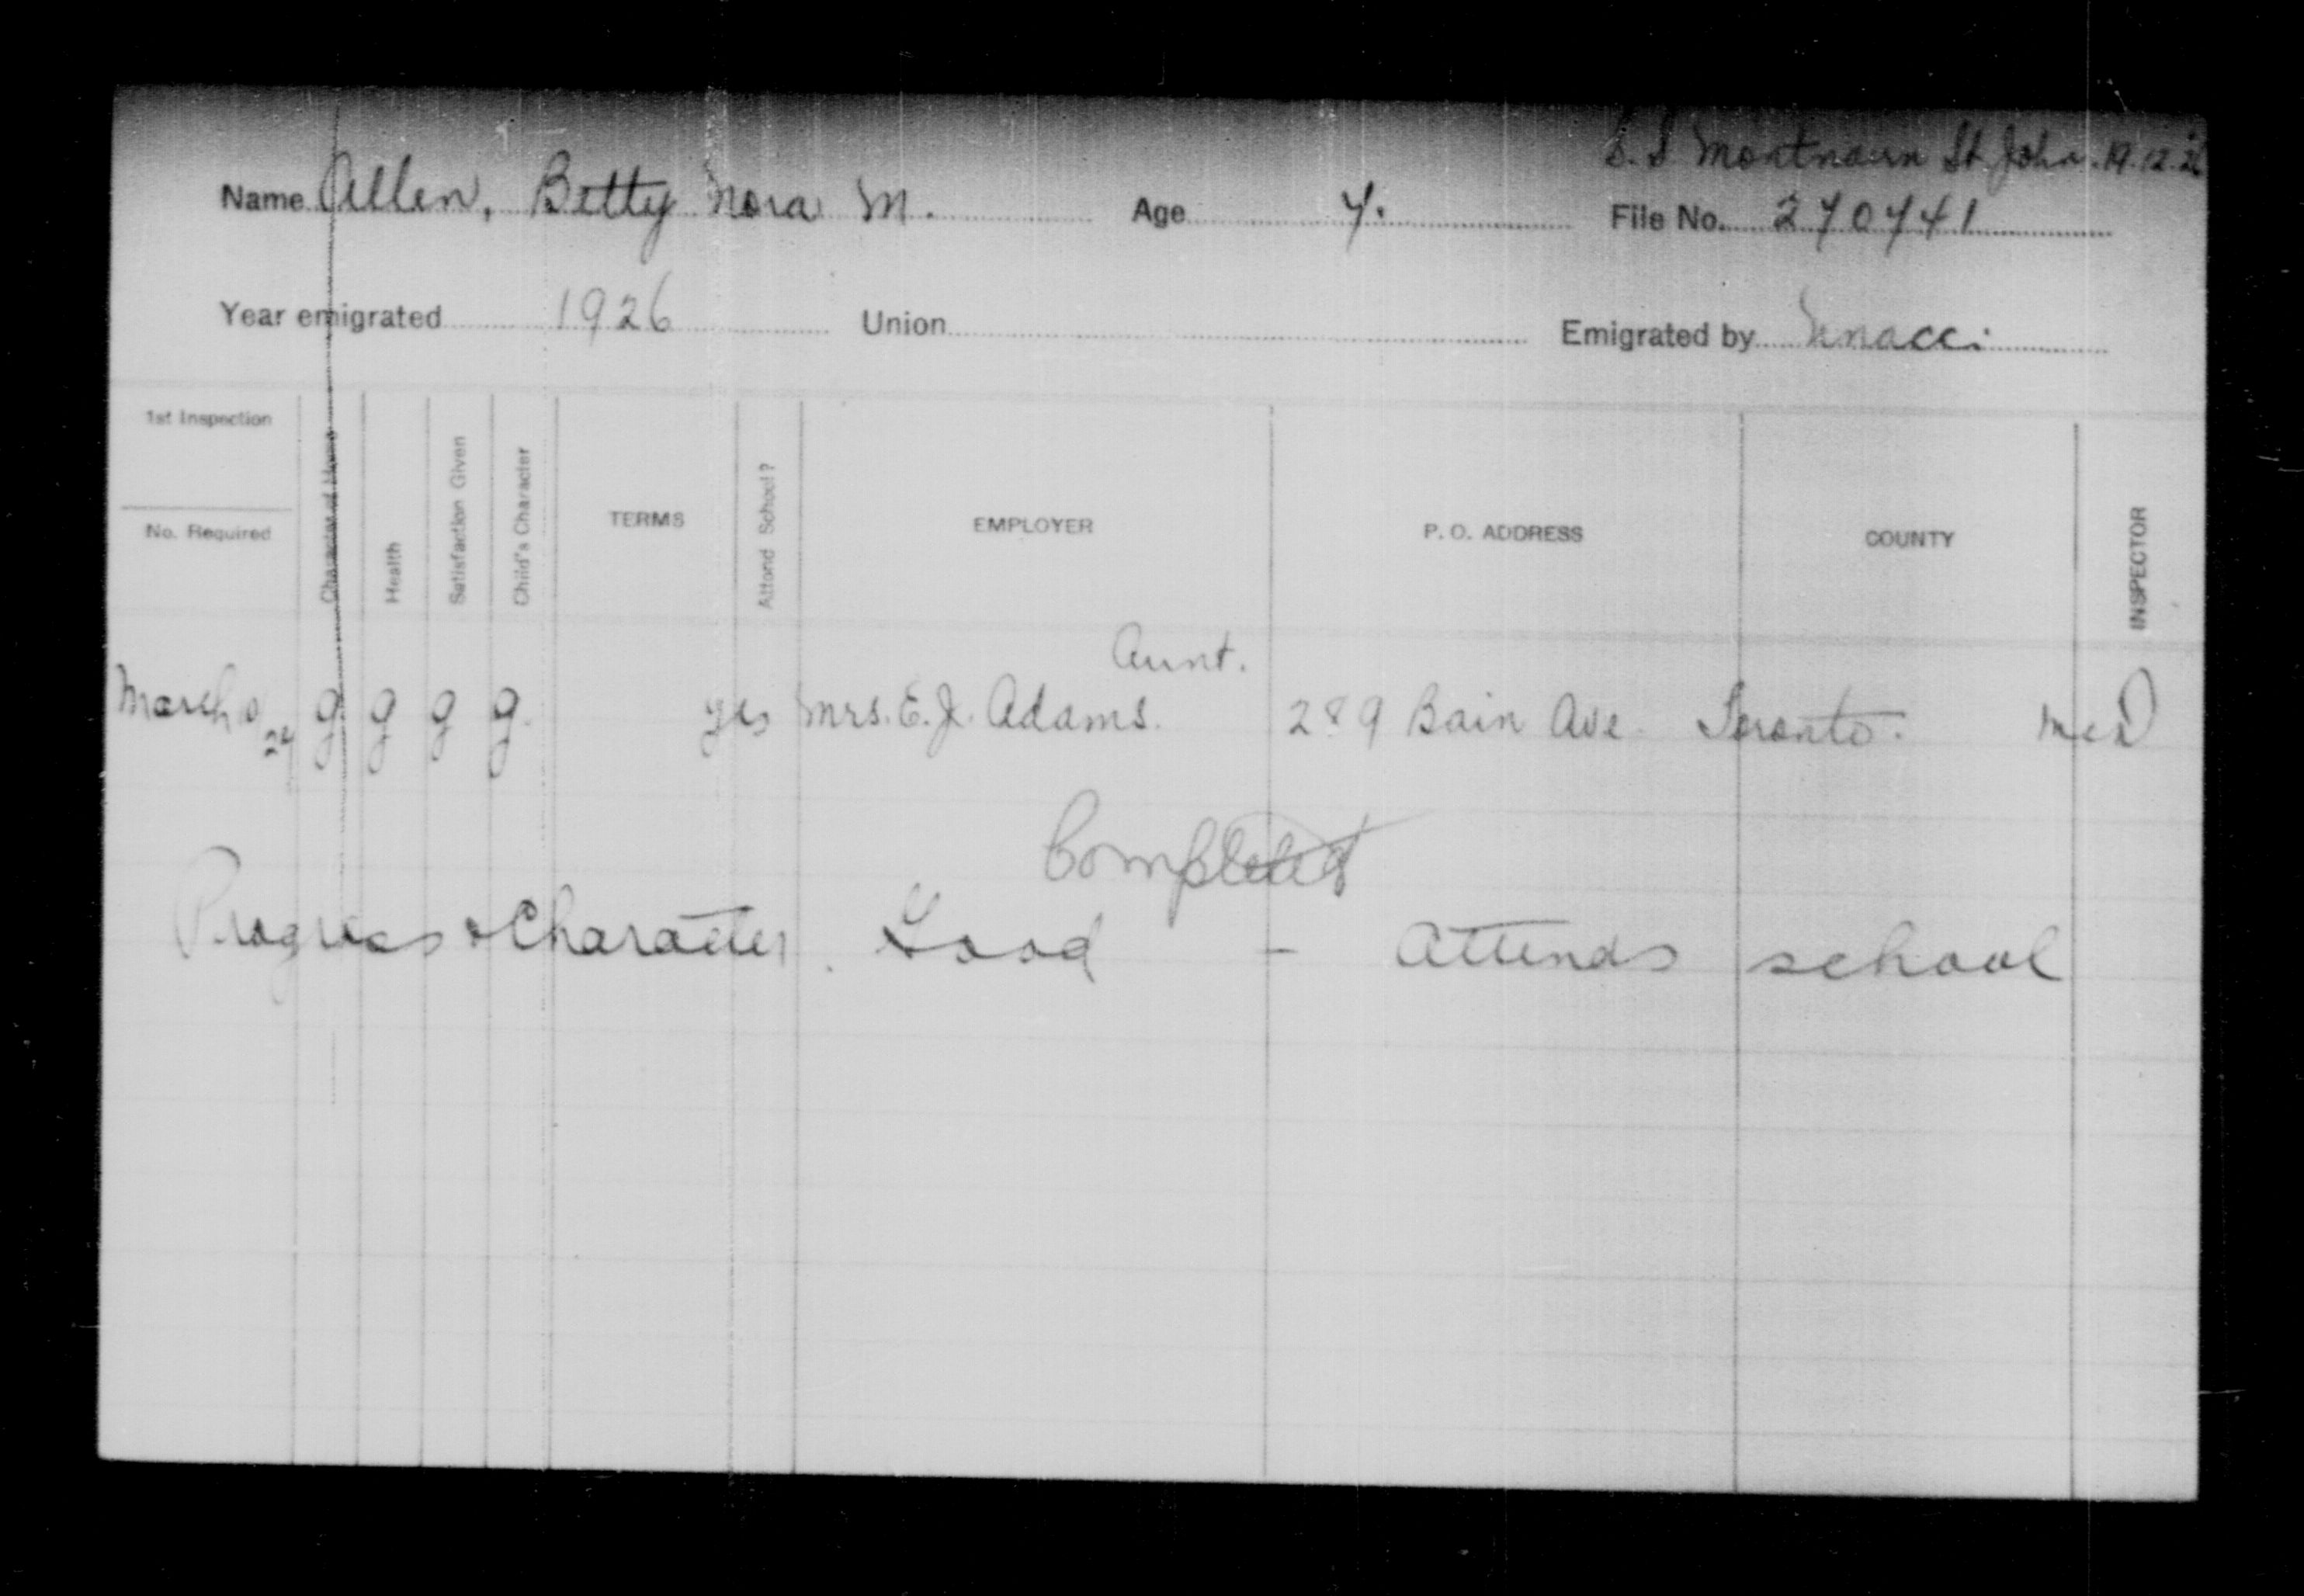 S.S Montnairn St. John. 19.12.26
Name Allen, Betty Nora M. Age 7. File No. 270741
Year emigrated 1926 Union Emigrated by
1st Inspection
No. Required
Character of Home
Health
Satisfaction Given
Child's Character
TERMS
Attend School?
EMPLOYER
P. O. ADDRESS
COUNTY
INSPECTOR
Aunt.
March g. g g g. yes Mrs. E. J. Adams. 289 Bain Ave. Toronto. McD
Completed
Progress & Character. Good - Attends school